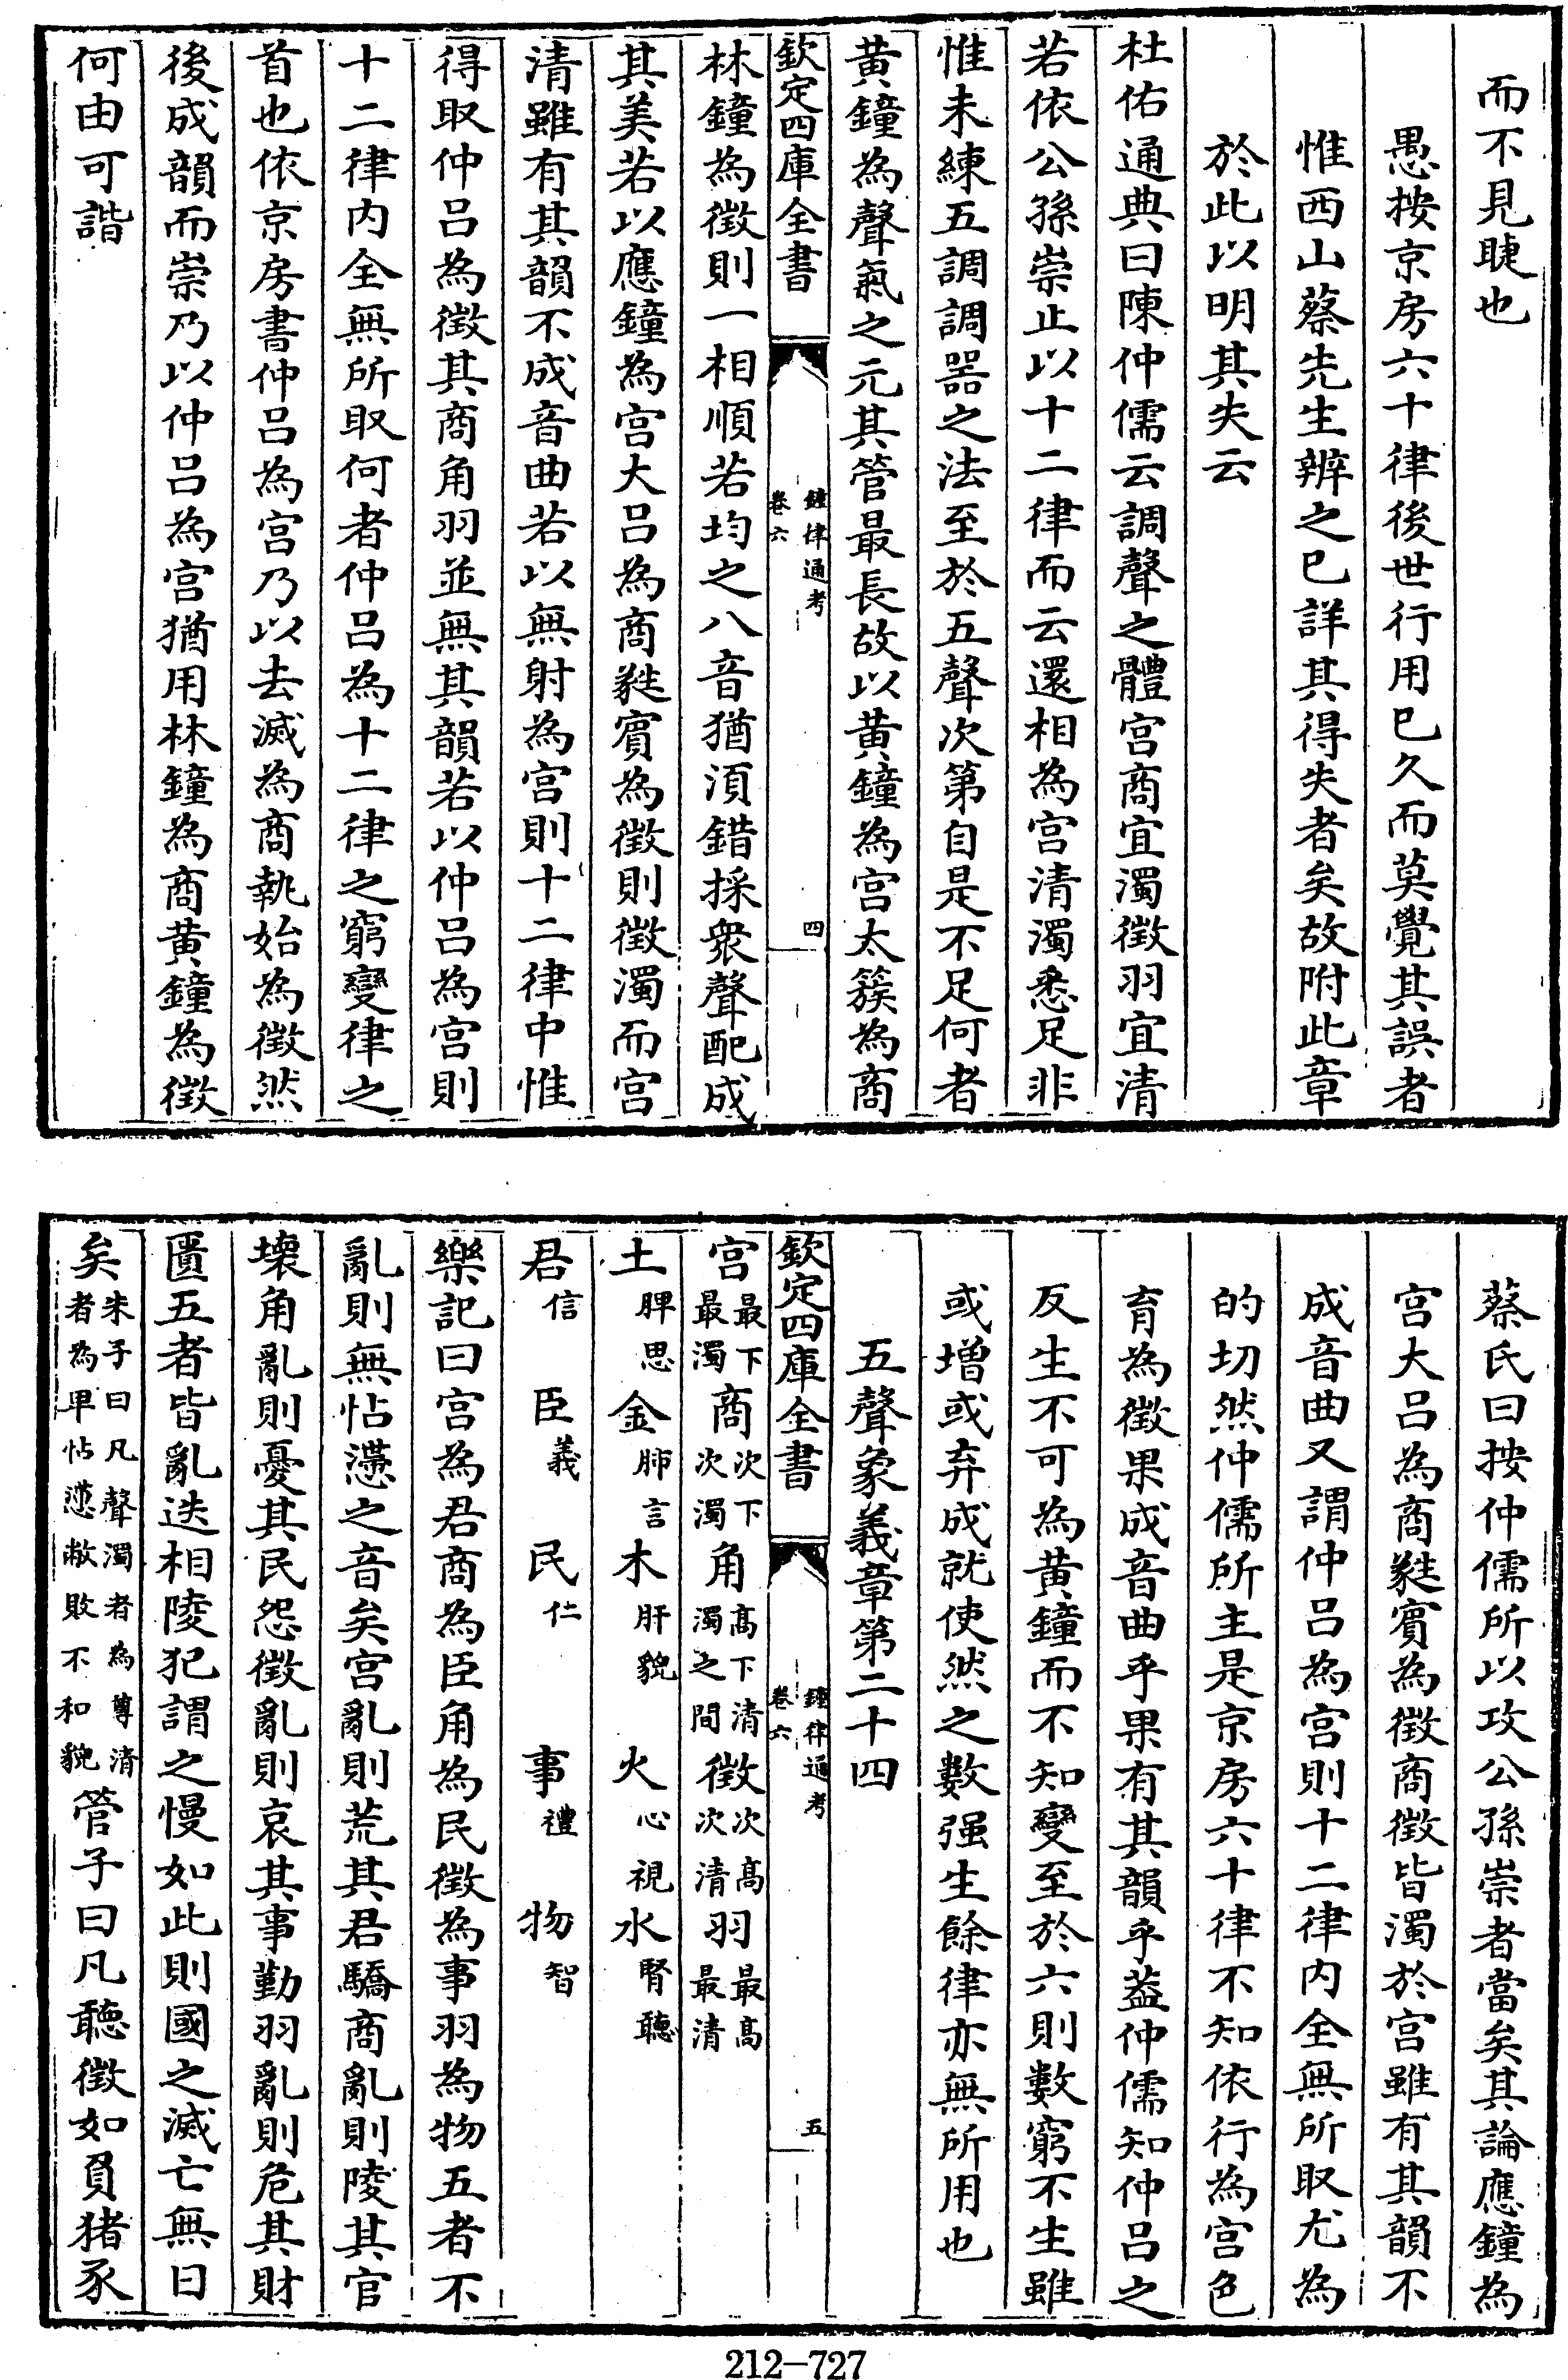 而不見睫也
愚按京房六十律後世行用已久而莫覺其誤者
惟西山蔡先生辨之已詳其得失者矣故附此章
於此以明其失云
杜佑通典曰陳仲儒云調聲之體宫商宜濁徵羽宜清
若依公孫崇止以十二律而云還相為宫清濁悉足非
惟未練五調調器之法至於五聲次第自是不足何者
黄鐘為聲氣之元其管最長故以黄鐘為宫太簇為商
欽定四庫全書
鐘律通考
卷六
四
林鐘為徵則一相順若均之八音猶須錯採衆聲配成
其美若以應鐘為宫大吕為商蕤賓為徵則徵濁而宫
清雖有其韻不成音曲若以無射為宫則十二律中惟
得取仲吕為徵其商角羽並無其韻若以仲吕為宫則
十二律内全無所取何者仲吕為十二律之窮變律之
首也依京房書仲吕為宫乃以去滅為商執始為徵然
後成韻而崇乃以仲吕為宫猶用林鐘為商黄鐘為徵
何由可諧
蔡氏曰按仲儒所以攻公孫崇者當矣其論應鐘為
宫大吕為商蕤賓為徵商徵皆濁於宫雖有其韻不
成音曲又謂仲吕為宫則十二律内全無所取尤為
的切然仲儒所主是京房六十律不知依行為宫色
育為徵果成音曲乎果有其韻乎葢仲儒知仲吕之
反生不可為黄鐘而不知變至於六則數窮不生雖
或增或弃成就使然之數强生餘律亦無所用也
五聲象義章第二十四
欽定四庫全書
鐘律通考
卷六
五
宫最下最濁商次下次濁角高下清濁之間徵次高次清羽最高最清
土脾思金肺言木肝貌火心視水腎聽
君信臣義民仁事禮物智
樂記曰宫為君商為臣角為民徵為事羽為物五者不
亂則無怗懘之音矣宫亂則荒其君驕商亂則陵其官
壊角亂則憂其民怨徵亂則哀其事勤羽亂則危其財
匱五者皆亂迭相陵犯謂之慢如此則國之滅亡無日
矣朱子曰凡聲濁者為尊清者為卑怗懘敝敗不和貌管子曰凡聽徵如負猪豕
212-727